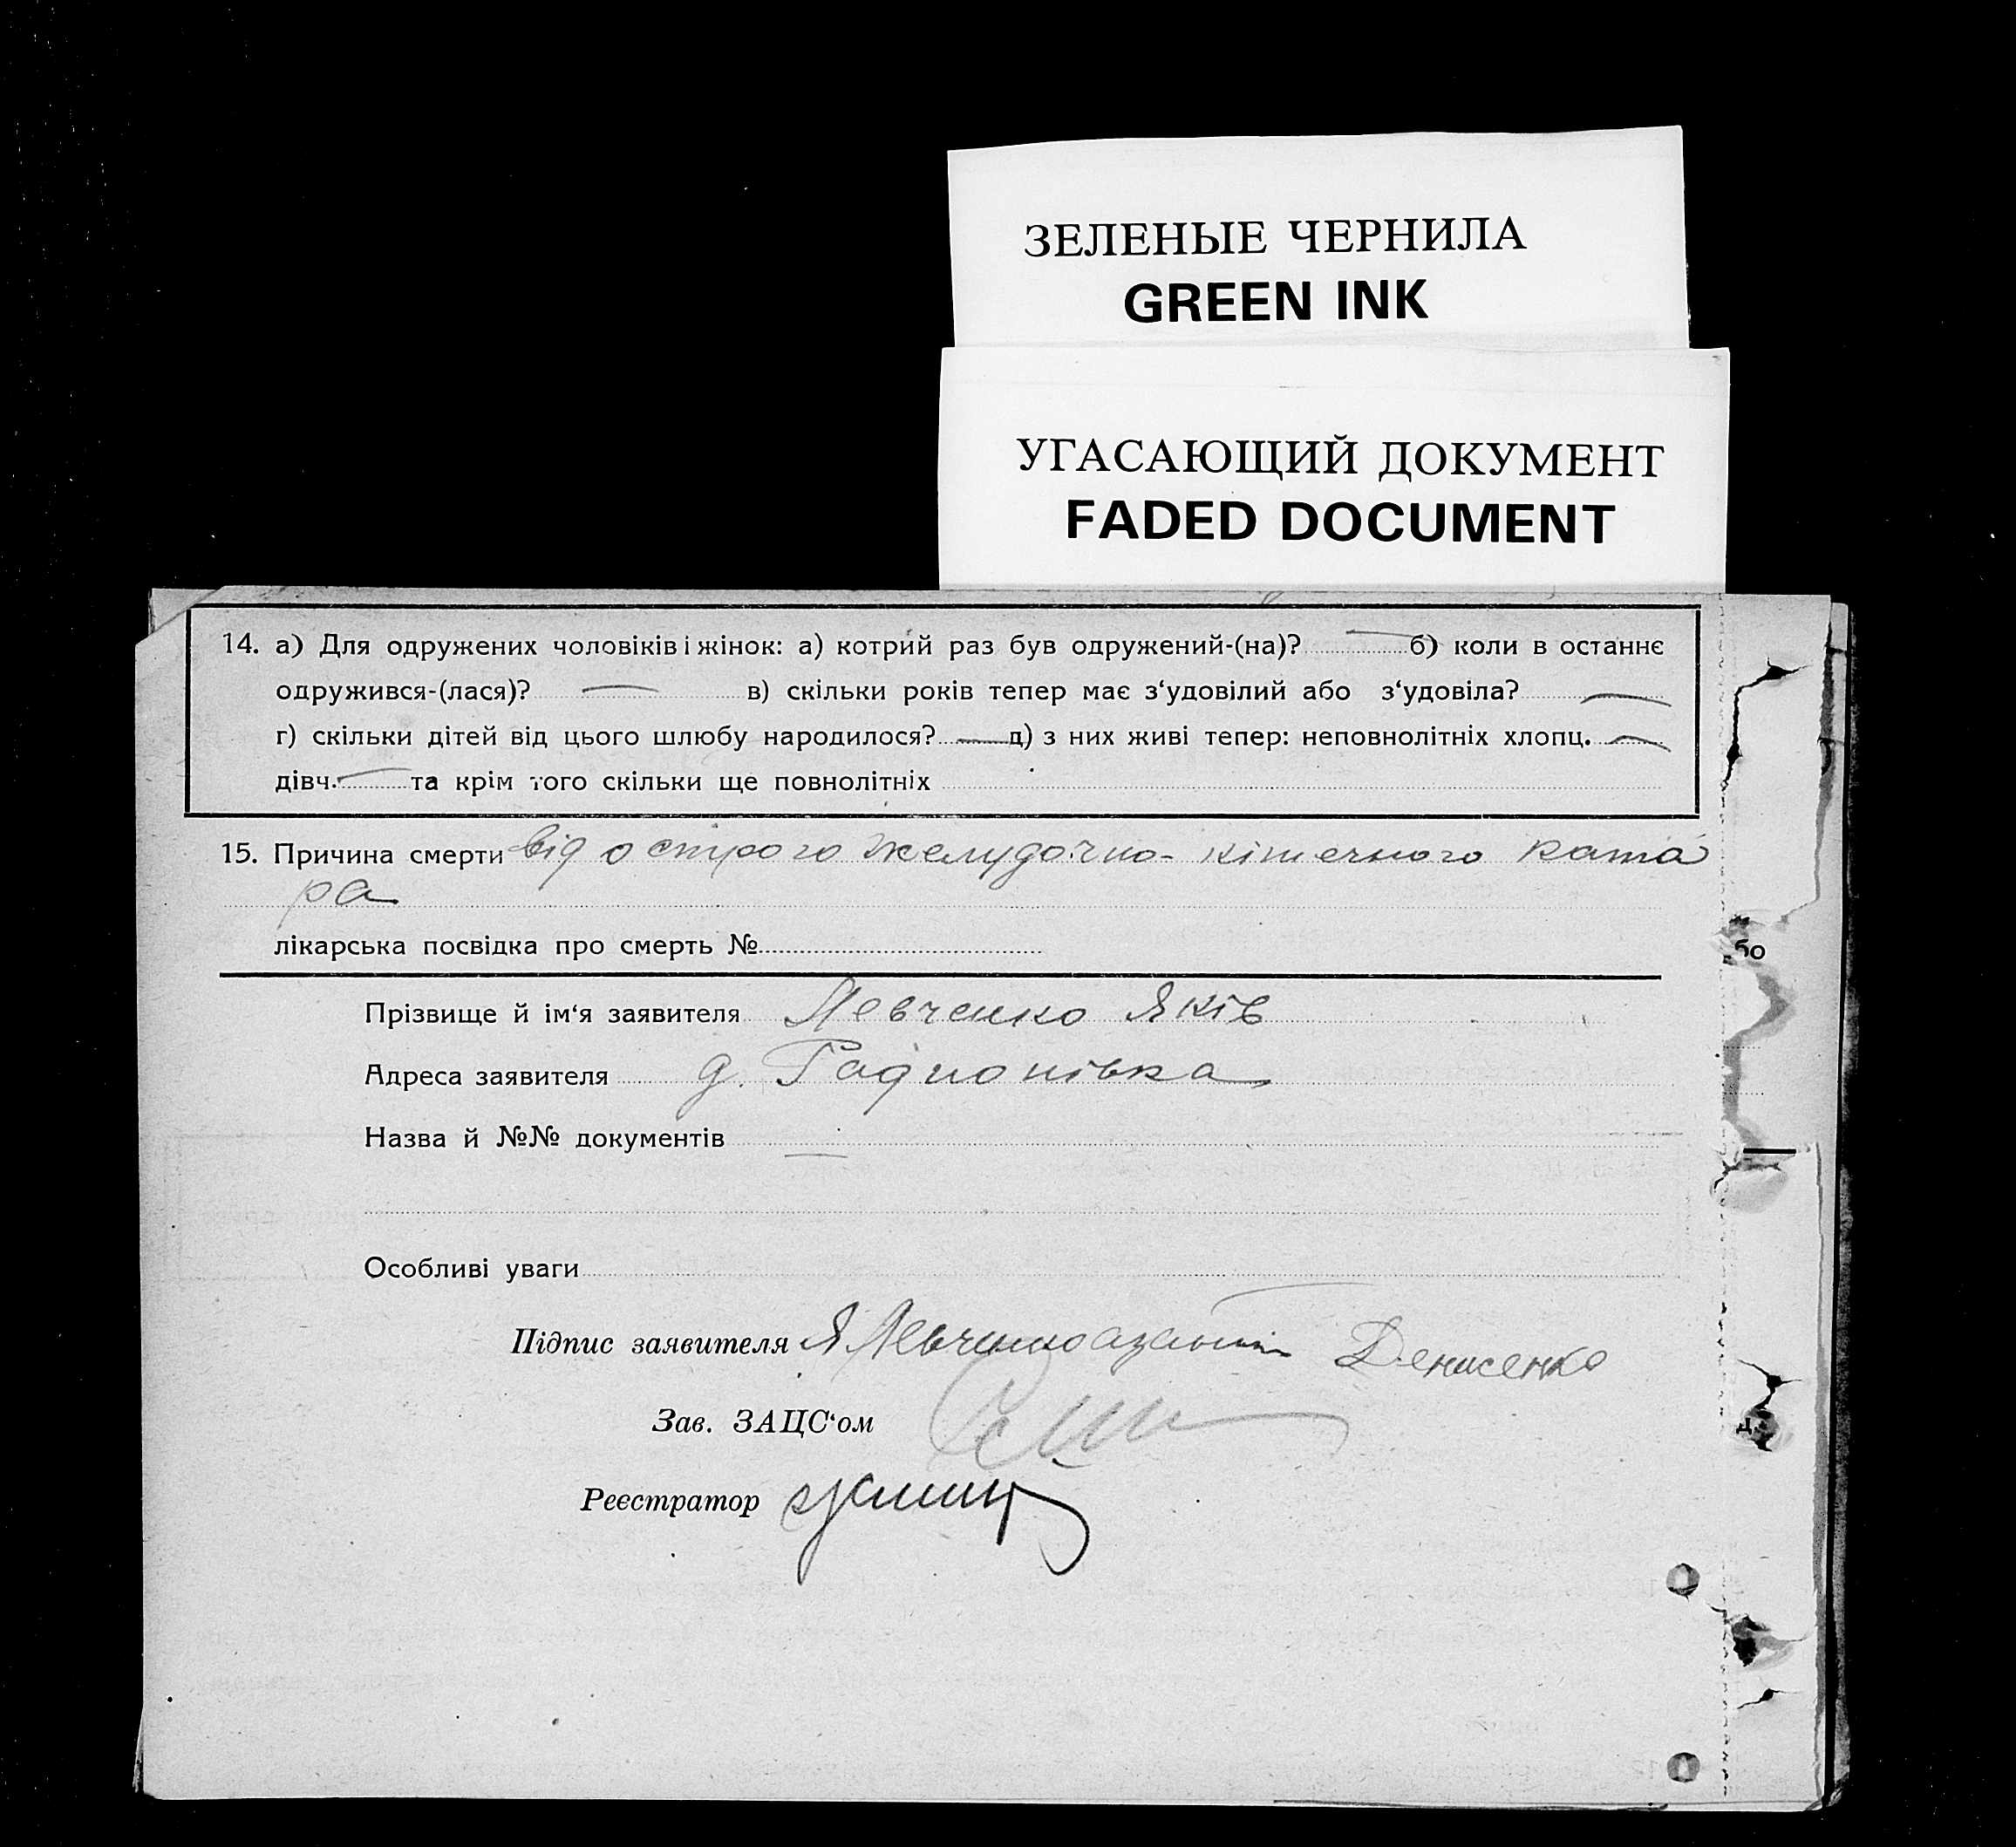 ЗЕЛЕНЫЕ ЧЕРНИЛА
GREEN INK
УГАСАЮЩИЙ ДОКУМЕНТ
FADED DOCUMENT
14. а) Для одружених чоловіків і жінок: а) котрий раз був одружений-(на)? — б) коли в останнє
одружився-(лася)? — в) скільки років тепер має з‘удовілий або з‘удовіла? —
г) скільки дітей від цього шлюбу народилося? — д) з них живі тепер: неповнолітніх хлопц. —
дівч. — та крім того скільки ще повнолітніх
15. Причина смерти від острого желудочно-кішечного ката
ра
лікарська посвідка про смерть №
бо
Прізвище й ім‘я заявителя Левченко Яків
Адреса заявителя д. Радионівка
Назва й №№ документів —
Особливі уваги
Підпис заявителя Я Левченко Денисенко
Зав. ЗАЦС‘ом
д.
Реєстратор